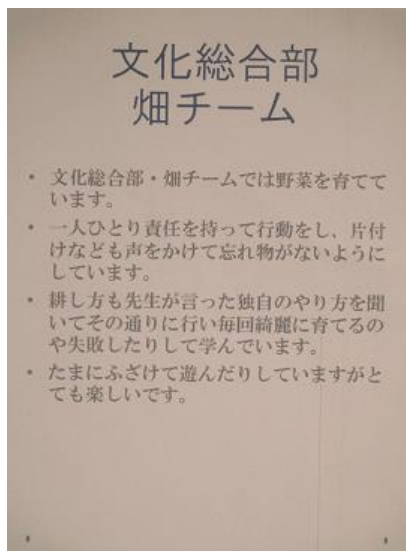 文化総合部
畑チーム
・ 文化総合部・畑チームでは野菜を育てて
います。
・ 一人ひとり責任を持って行動をし、片付
けなども声をかけて忘れ物がないように
しています。
・ 耕し方も先生が言った独自のやり方を聞
いてその通りに行い毎回綺麗に育てるの
や失敗したりして学んでいます。
・ たまにふざけて遊んだりしていますがと
ても楽しいです。